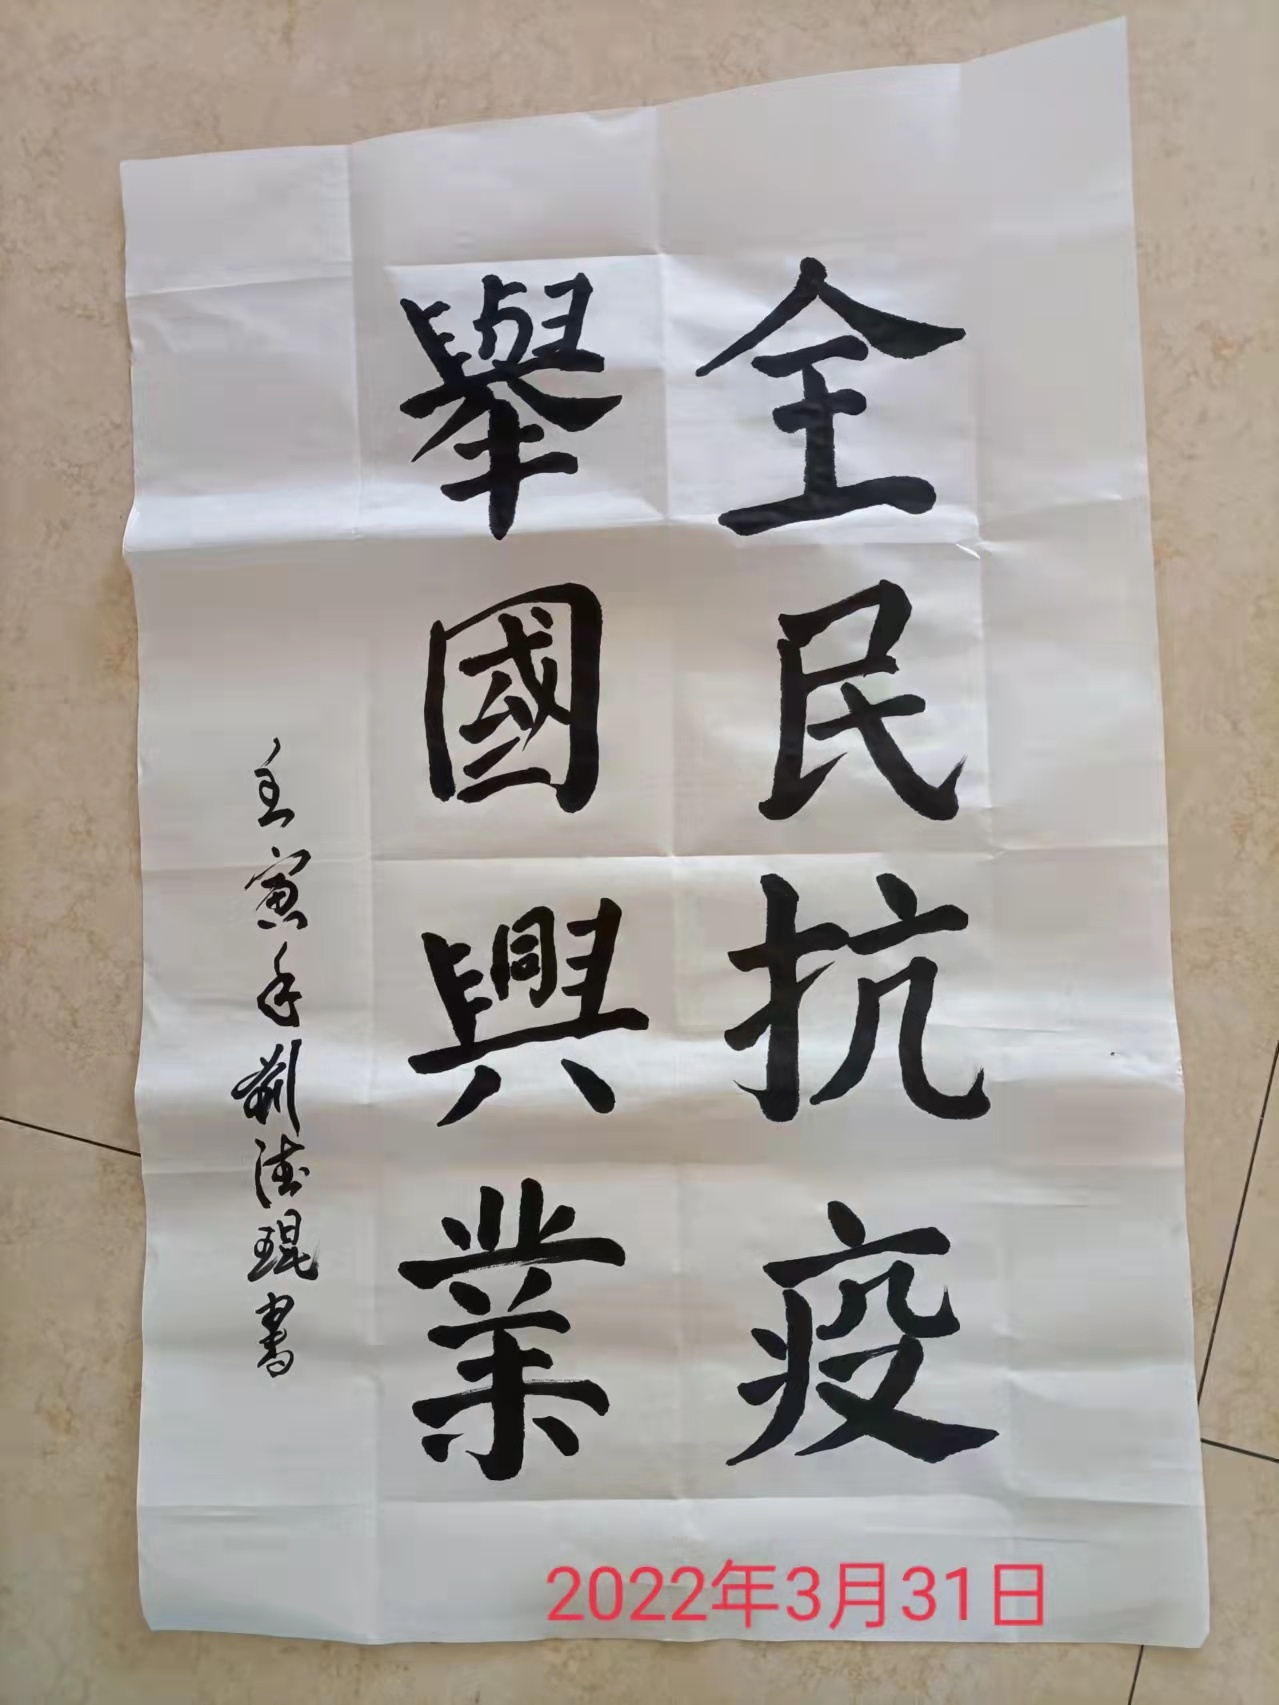 全民抗疫
舉國興業
壬寅年劉德琨書
2022年3月31日